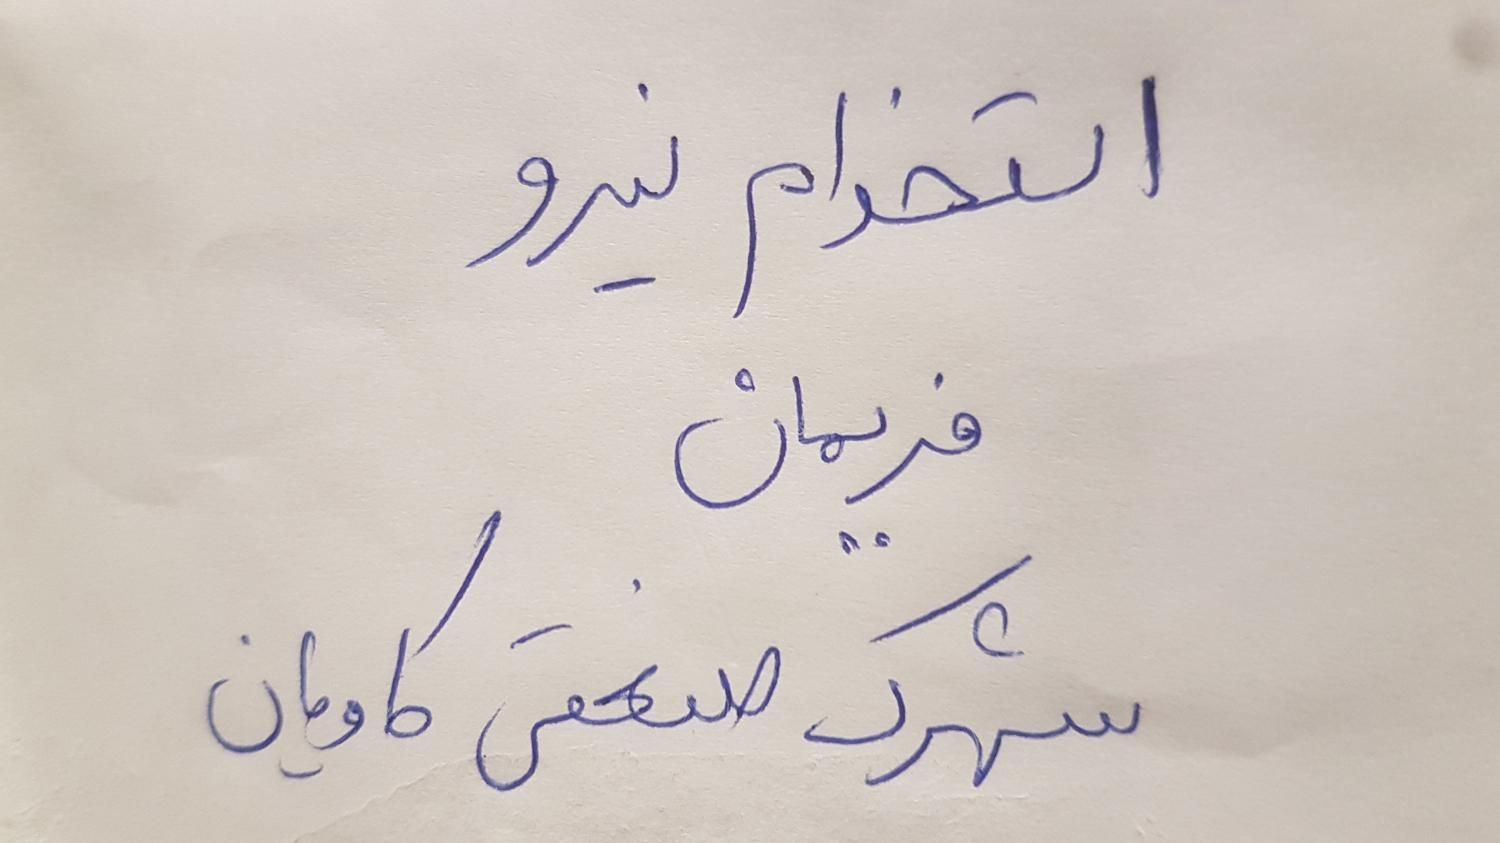 استخدام نیرو
فریمان
شهرک صنعتی کاویان